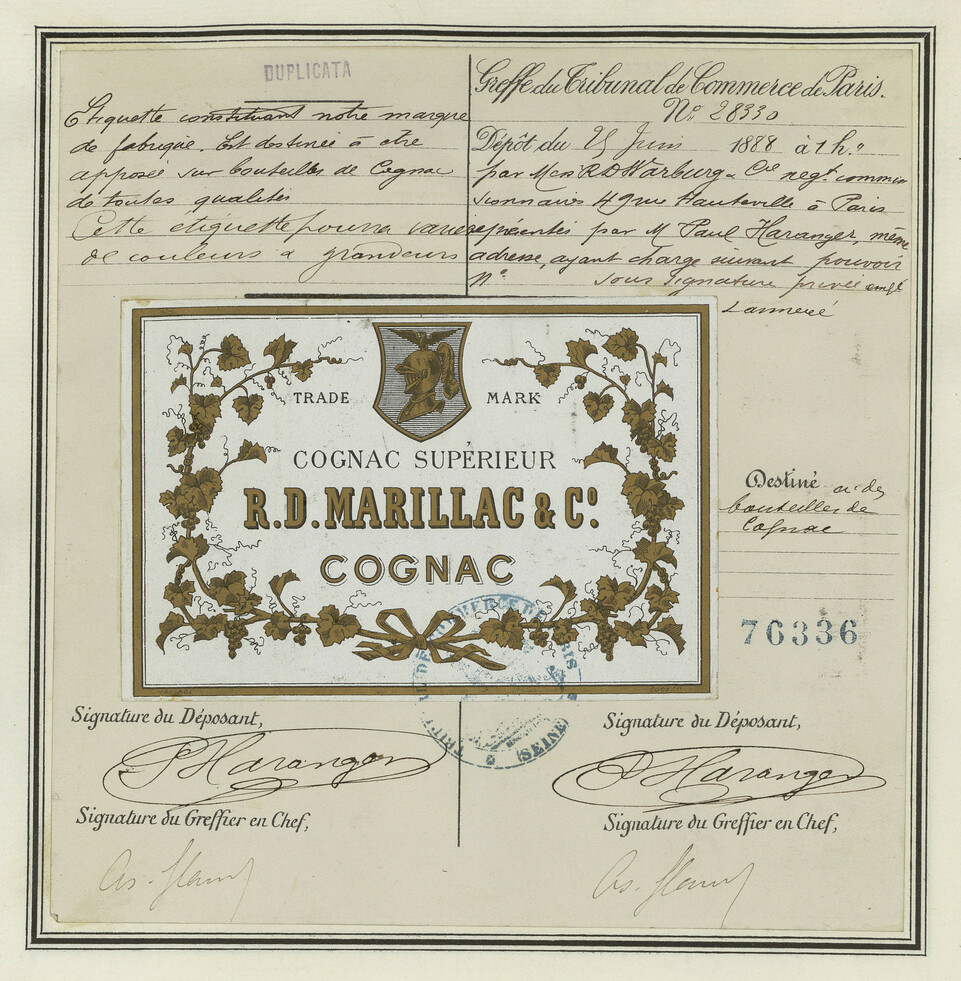 DUPLICATA
Etiquette constituant notre marque
de fabrique. Est destinée à être
apposée sur bouteilles de Cognac
de toutes qualités
Cette étiquette pourra varier
de couleurs & grandeurs
Greffe du Tribunal de Commerce de Paris.
No. 28330
Dépôt du 25 Juin 1888 à 1 h.
par Mess RD Warburg & Cie negts commis
sionnaires 49 rue Hauteville à Paris
représentés par M Paul Haranger, même
adresse, ayant charge suivant pouvoir
No sous signature privée
TRADE MARK
COGNAC SUPÉRIEUR
R.D. MARILLAC & Co.
COGNAC
Destiné à des
bouteilles de
Cognac
76336
TRIBUNAL DE COMMERCE DE PARIS
(SEINE)
Signature du Déposant,
P Haranger
Signature du Greffier en Chef,
Signature du Déposant,
P Haranger
Signature du Greffier en Chef,